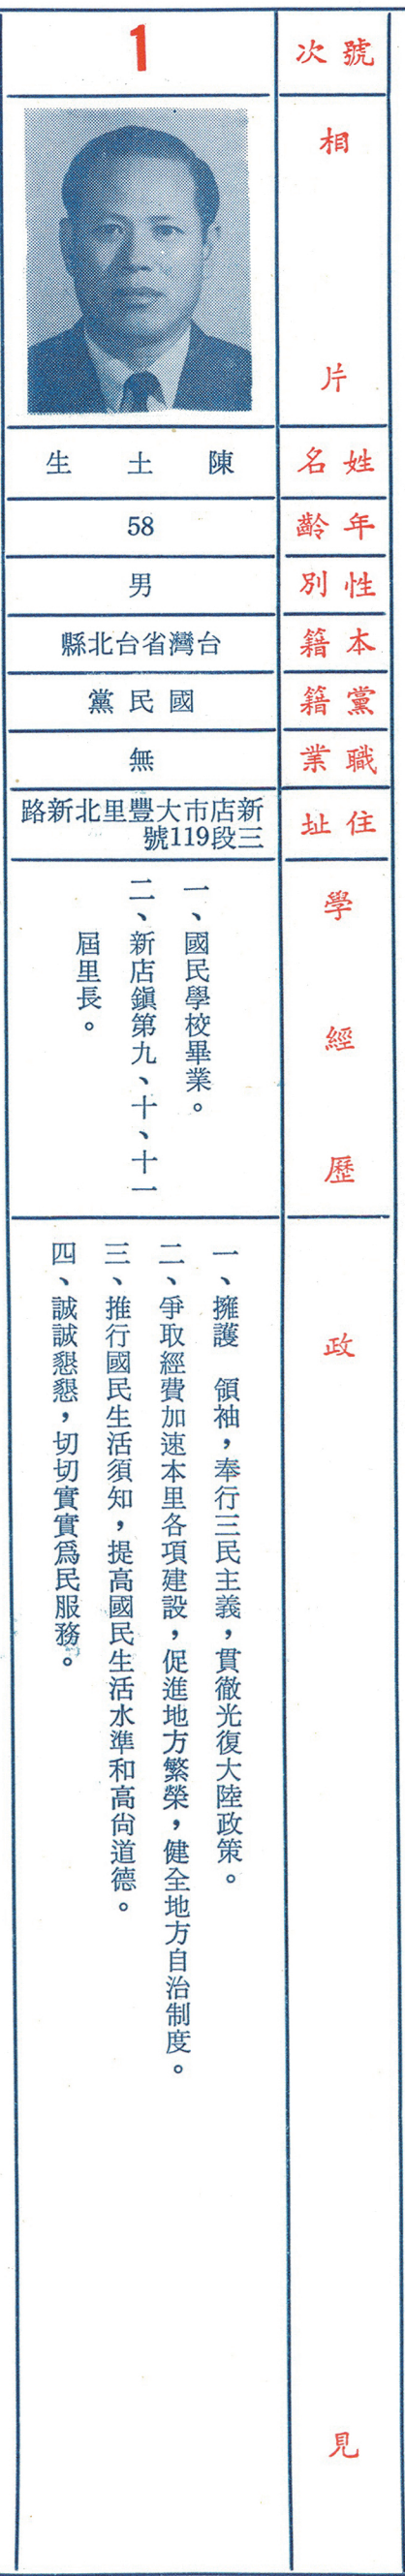 號次
1
相片
姓名
陳土生
年齡
58
性別
男
本籍
台灣省台北縣
黨籍
國民黨
職業
無
住址
新店市大豐里北新路
三段119號
學經歷
一、國民學校畢業。
二、新店鎮第九、十、十一
屆里長。
政見
一、擁護　領袖，奉行三民主義，貫徹光復大陸政策。
二、爭取經費加速本里各項建設，促進地方繁榮，健全地方自治制度。
三、推行國民生活須知，提高國民生活水準和高尙道德。
四、誠誠懇懇，切切實實爲民服務。